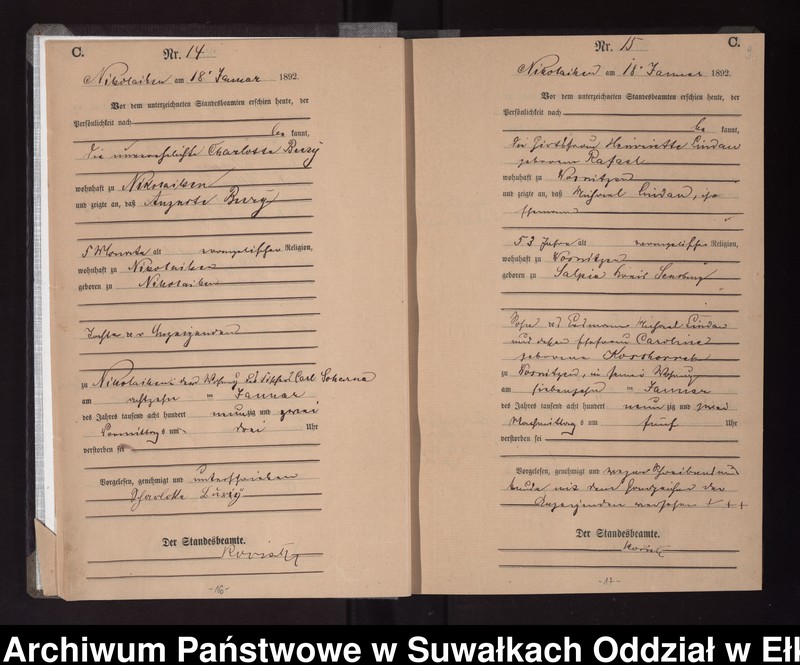 C.
Nr. 14
Nikolaiken am 18. Januar 1892.
Vor dem unterzeichneten Standesbeamten erschien heute, der
Persönlichkeit nach
be kannt,
die unverehelichte Charlotte
wohnhaft zu Nikolaiken
und zeigte an, daß Auguste
5 Monate alt evangelischer Religion,
wohnhaft zu Nikolaiken
geboren zu Nikolaiken
Tochter der Anzeigenden
zu Nikolaiken in der Wohnung des Carl
am achtzehn ten Januar
des Jahres tausend acht hundert neunzig und zwei
Vormittags um drei Uhr
verstorben sei
Vorgelesen, genehmigt und unterschrieben
Charlotte
Der Standesbeamte.
-16-
Nr. 15
C.
Nikolaiken am 18. Januar 1892.
Vor dem unterzeichneten Standesbeamten erschien heute, der
Persönlichkeit nach
be kannt,
die Wirthsfrau Henriette Lindau
geborene Rafael
wohnhaft zu
und zeigte an, daß Michael Lindau, ihr
Ehemann
53 Jahre alt evangelischer Religion,
wohnhaft zu
geboren zu Salpia Kreis Sensburg
Sohn des Michael Lindau
und dessen Ehefrau Caroline
geborene
zu in seiner Wohnung
am siebenzehn ten Januar
des Jahres tausend acht hundert neunzig und zwei
Nachmittags um fünf Uhr
verstorben sei
Vorgelesen, genehmigt und wegen Schreibensun
kunde mit dem Handzeichen der
Anzeigenden versehen + + +
Der Standesbeamte.
-17-
Archiwum Państwowe w Suwałkach Oddział w Eł